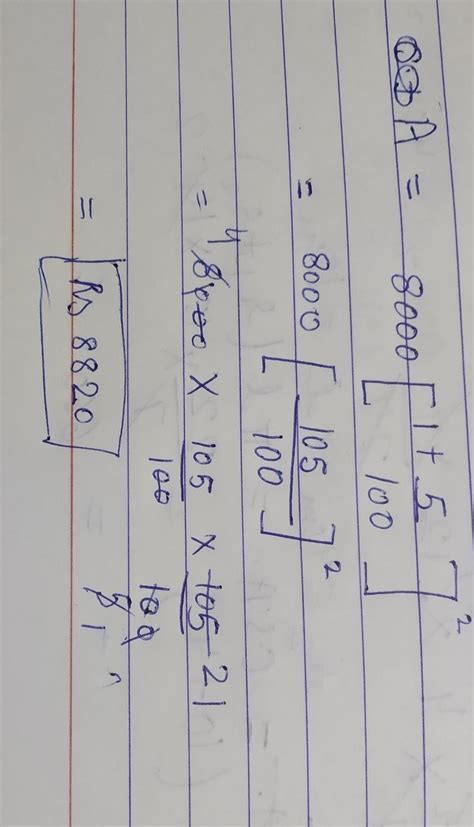 A = 8000 [1 + 5/100]²
= 8000 [105/100]²
= 4 8000 × 105/100 × 105/100 21
5 1
= Rs 8820